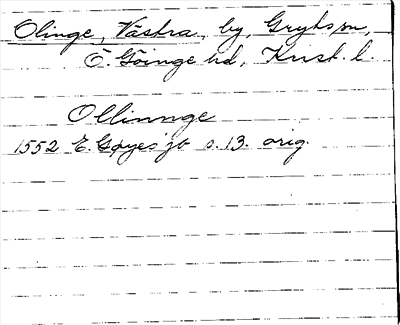 Olinge, Västra, by, Gryts sn,
Ö. Göinge hd, Krist. l.
Ollinnge
1552 E. Gøyes jb s. 13. orig.